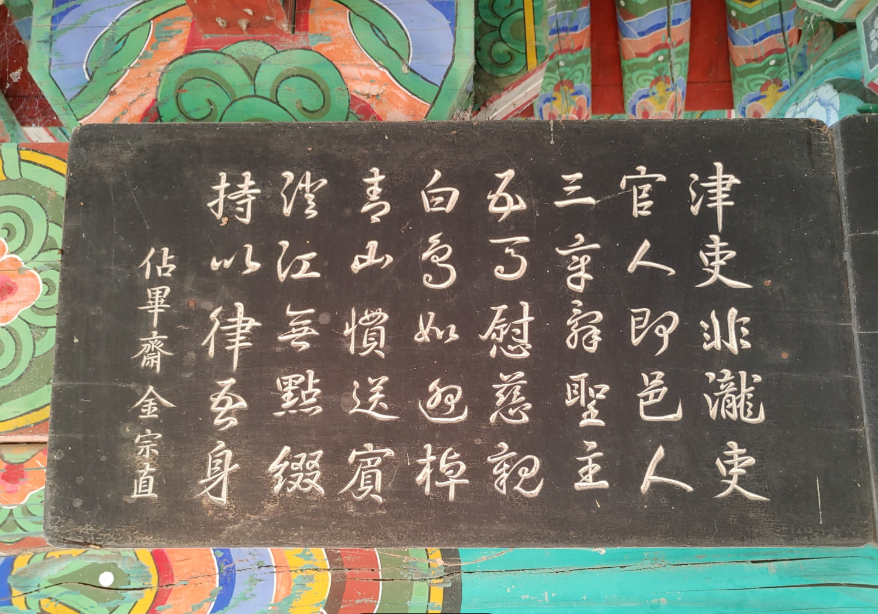 津吏非瀧吏
官人即邑人
三章辭聖主
五馬慰慈親
白鳥如迎棹
青山慣送賓
澄江無點綴
持以律吾身
佔畢齋金宗直